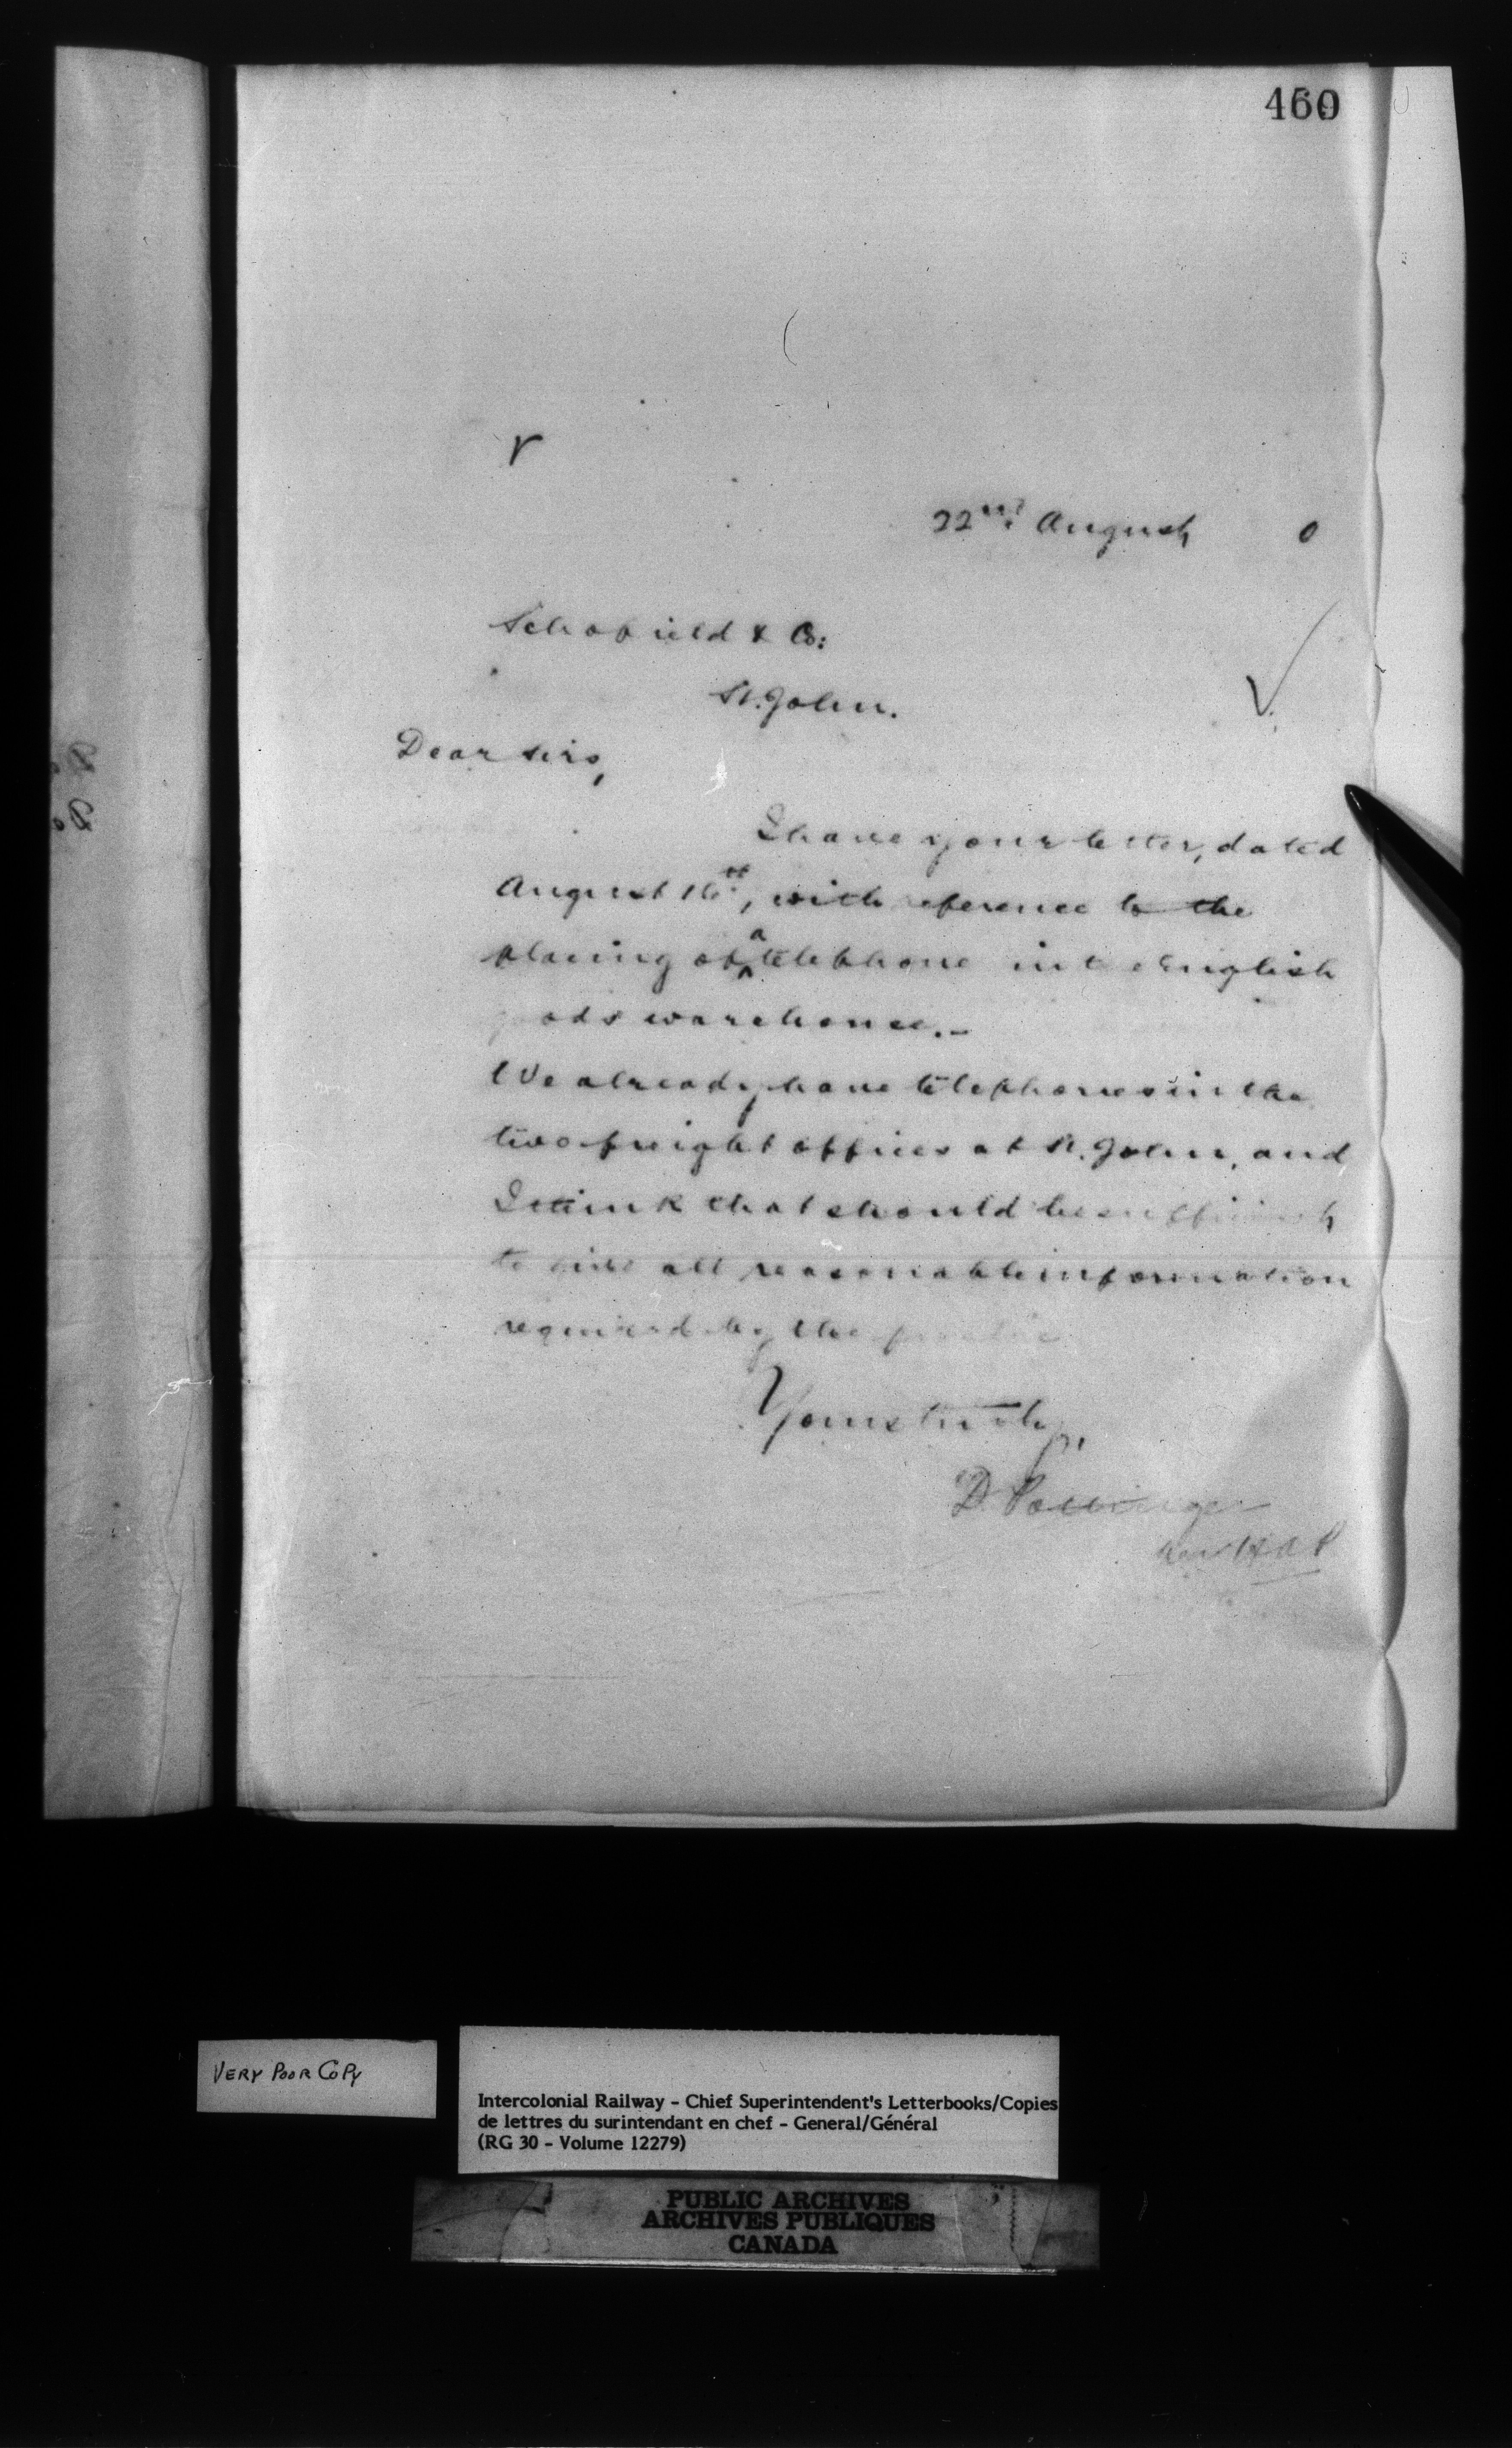 460
r
22nd. August 0
Schofield & Co:
St. John.
Dear Sirs,
I have your letter, dated
August 16th, with reference to the
placing of a telephone in t e English
ods warehouse. –
We already have telephones in the
two freight offices at St. John, and
I think that should be sufficient
to give all reasonable information
required by the public
Yours truly,
D. Pottinger
per HAP
VERY POOR COPY
Intercolonial Railway - Chief Superintendent's Letterbooks/Copies
de lettres du surintendant en chef - General/Général
(RG 30 - Volume 12279)
PUBLIC ARCHIVES
ARCHIVES PUBLIQUES
CANADA